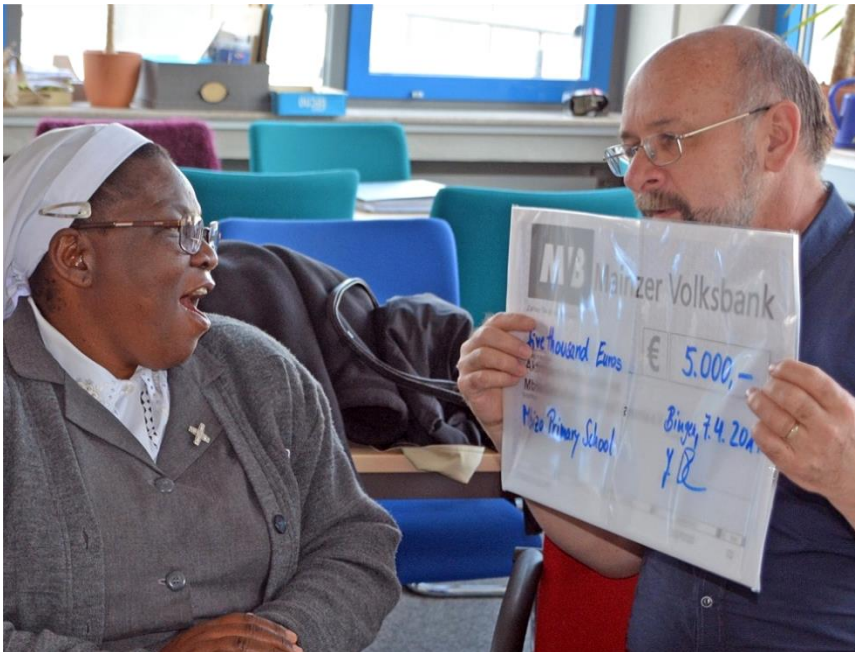 MVB Mainzer Volksbank
five thousand Euros € 5.000,-
Primary School
Bingen, 7.4.